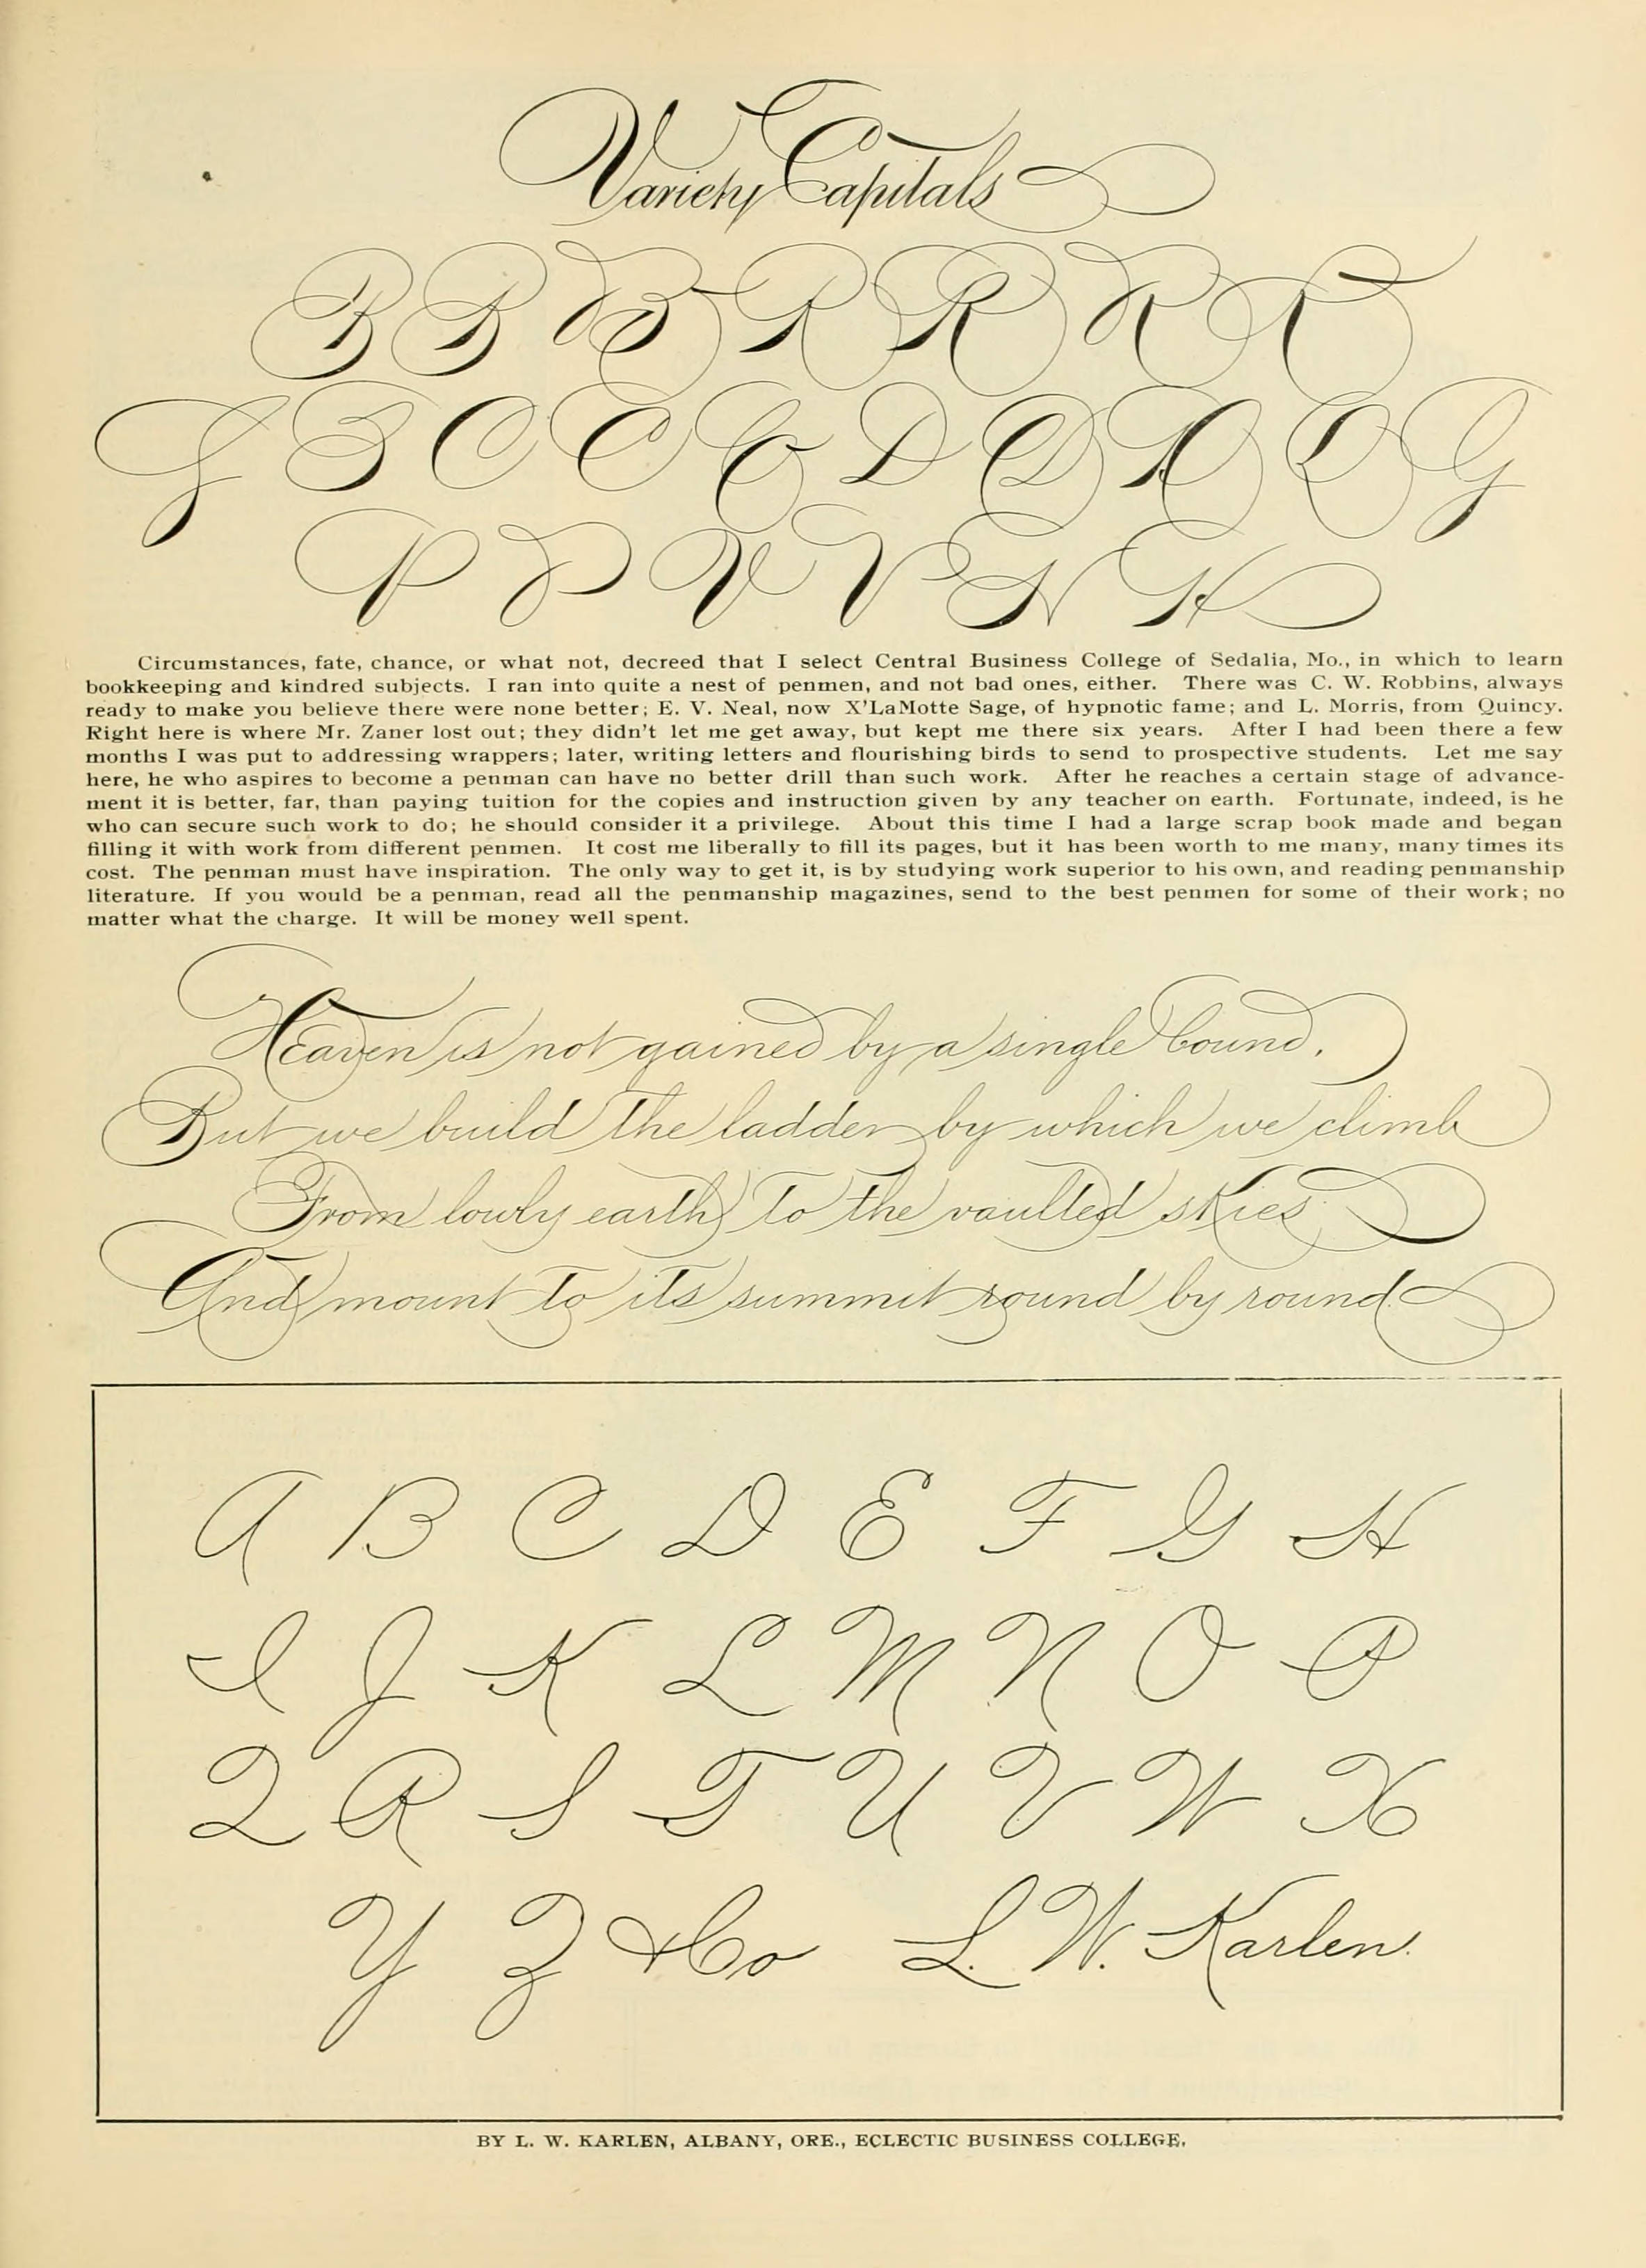 Variety Capitals
B B B R R R R
I B C C C D D D D G
P P V V N H
Circumstances, fate, chance, or what not, decreed that I select Central Business College of Sedalia, Mo., in which to learn
bookkeeping and kindred subjects. I ran into quite a nest of penmen, and not bad ones, either. There was C. W. Robbins, always
ready to make you believe there were none better; E. V. Neal, now X'LaMotte Sage, of hypnotic fame; and L. Morris, from Quincy.
Right here is where Mr. Zaner lost out; they didn't let me get away, but kept me there six years. After I had been there a few
months I was put to addressing wrappers; later, writing letters and flourishing birds to send to prospective students. Let me say
here, he who aspires to become a penman can have no better drill than such work. After he reaches a certain stage of advance-
ment it is better, far, than paying tuition for the copies and instruction given by any teacher on earth. Fortunate, indeed, is he
who can secure such work to do; he should consider it a privilege. About this time I had a large scrap book made and began
filling it with work from different penmen. It cost me liberally to fill its pages, but it has been worth to me many, many times its
cost. The penman must have inspiration. The only way to get it, is by studying work superior to his own, and reading penmanship
literature. If you would be a penman, read all the penmanship magazines, send to the best penmen for some of their work; no
matter what the charge. It will be money well spent.
Heaven is not gained by a single bound.
But we build the ladder by which we climb
From lowly earth to the vaulted skies
And mount to its summit round by round.
A B C D E F G H
I J K L M N O P
Q R S T U V W X
Y Z & Co L. W. Karlen.
BY L. W. KARLEN, ALBANY, ORE., ECLECTIC BUSINESS COLLEGE.